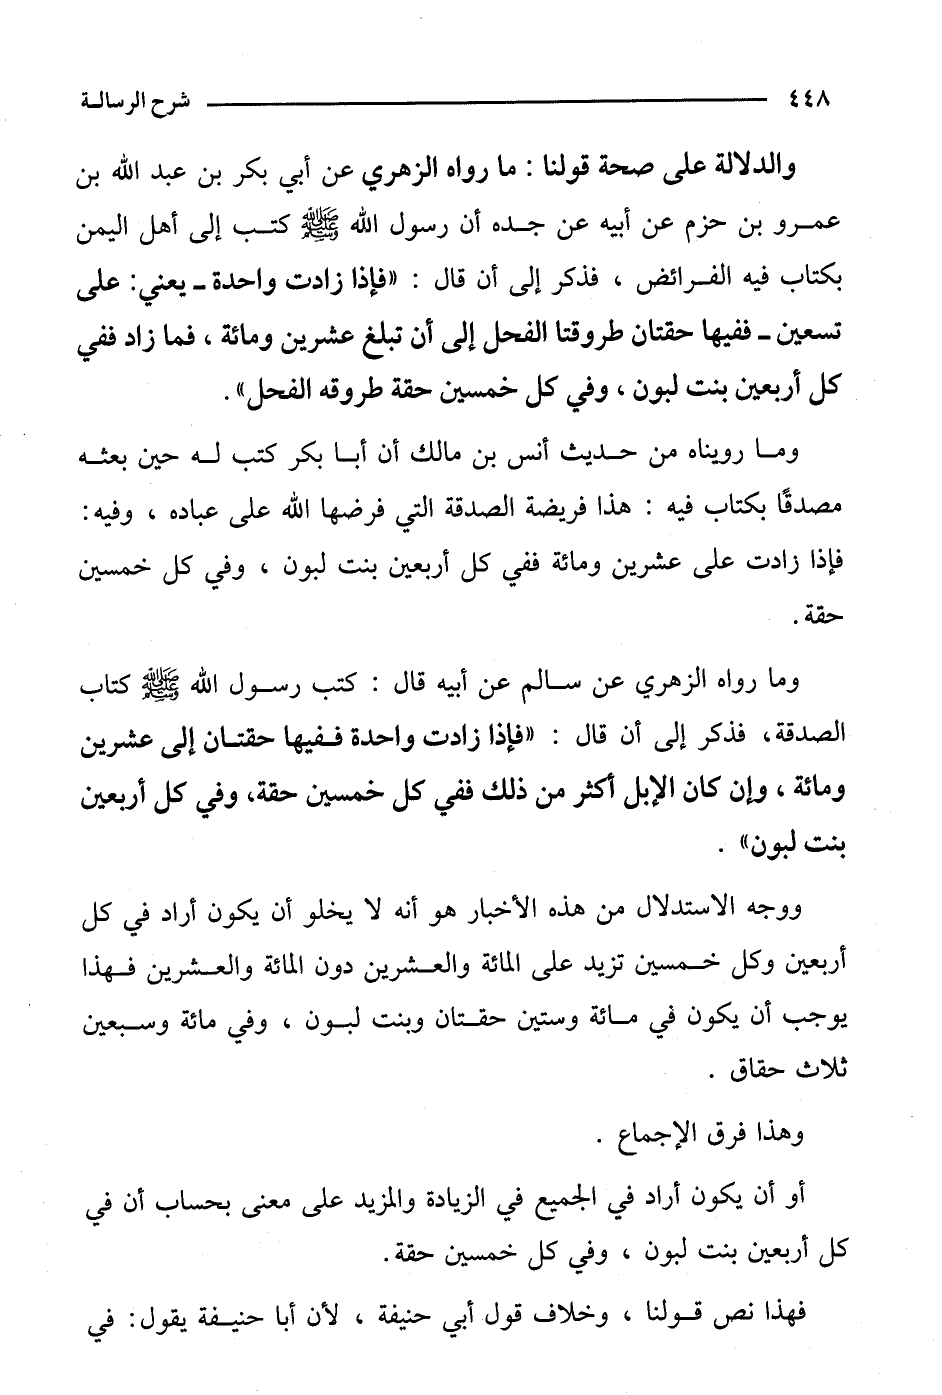 ٤٤٨ شرح الرسالة
والدلالة على صحة قولنا : ما رواه الزهري عن أبي بكر بن عبد الله بن
عمرو بن حزم عن أبيه عن جده أن رسول الله ﷺ كتب إلى أهل اليمن
بكتاب فيه الفرائض ، فذكر إلى أن قال : «فإذا زادت واحدة ـ يعني: على
تسعين ـ ففيها حقتان طروقتا الفحل إلى أن تبلغ عشرين ومائة ، فما زاد ففي
كل أربعين بنت لبون ، وفي كل خمسين حقة طروقه الفحل» .
وما رويناه من حديث أنس بن مالك أن أبا بكر كتب له حين بعثه
مصدقًا بكتاب فيه : هذا فريضة الصدقة التي فرضها الله على عباده ، وفيه:
فإذا زادت على عشرين ومائة ففي كل أربعين بنت لبون ، وفي كل خمسين
حقة .
وما رواه الزهري عن سالم عن أبيه قال : كتب رسول الله ﷺ كتاب
الصدقة، فذكر إلى أن قال : «فإذا زادت واحدة ففيها حقتان إلى عشرين
ومائة ، وإن كان الإبل أكثر من ذلك ففي كل خمسين حقة، وفي كل أربعين
بنت لبون» .
ووجه الاستدلال من هذه الأخبار هو أنه لا يخلو أن يكون أراد في كل
أربعين وكل خمسين تزيد على المائة والعشرين دون المائة والعشرين فهذا
يوجب أن يكون في مائة وستين حقتان وبنت لبون ، وفي مائة وسبعين
ثلاث حقاق .
وهذا فرق الإجماع .
أو أن يكون أراد في الجميع في الزيادة والمزيد على معنى بحساب أن في
كل أربعين بنت لبون ، وفي كل خمسين حقة .
فهذا نص قولنا ، وخلاف قول أبي حنيفة ، لأن أبا حنيفة يقول: في